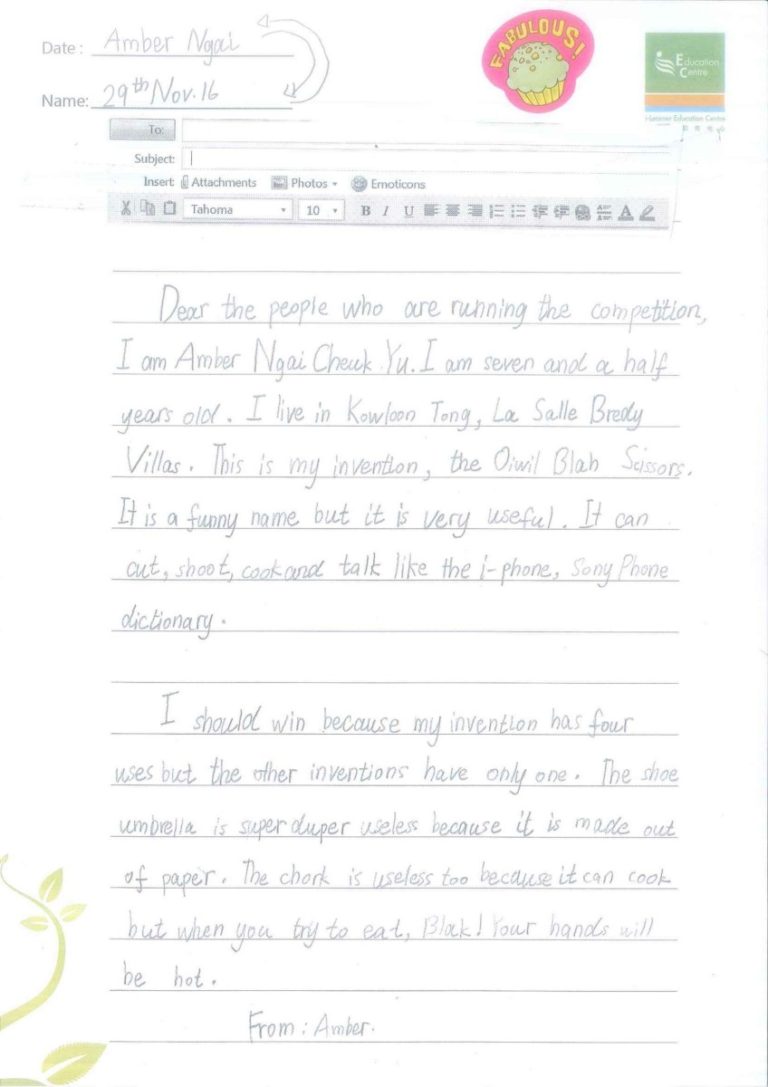 Date: Amber Ngai
FABULOUS!
Education Centre
Name: 29th Nov. 16
To:
Subject:
Insert: Attachments Photos Emoticons
Tahoma 10 B I U A
Dear the people who are running the competition,
I am Amber Ngai Cheuk Yu. I am seven and a half
years old. I live in Kowloon Tong, La Salle Bredy
Villas. This is my invention, the Oiwil Blah Scissors.
It is a funny name but it is very useful. It can
cut, shoot, cook and talk like the i-phone, Sony Phone
dictionary.
I should win because my invention has four
uses but the other inventions have only one. The shoe
umbrella is super duper useless because it is made out
of paper. The chork is useless too because it can cook
but when you try to eat, Blak! Your hands will
be hot.
From: Amber.